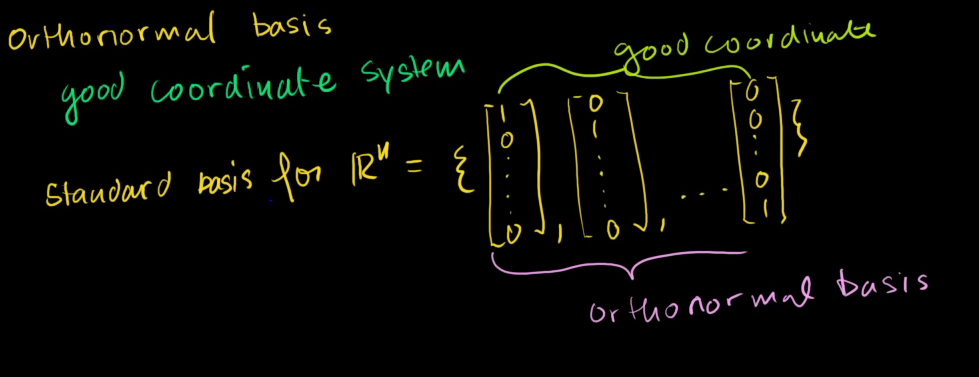 Orthonormal basis
good coordinate
good coordinate system
Standard basis for ℝⁿ = { [1 0 ⋮ 0], [0 1 ⋮ 0], ... [0 0 ⋮ 0 1] }
orthonormal basis